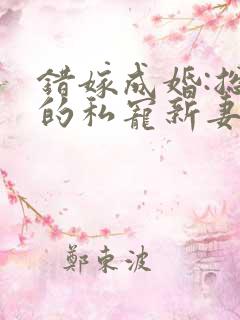 錯嫁成婚:總
的私寵新妻
鄭東波